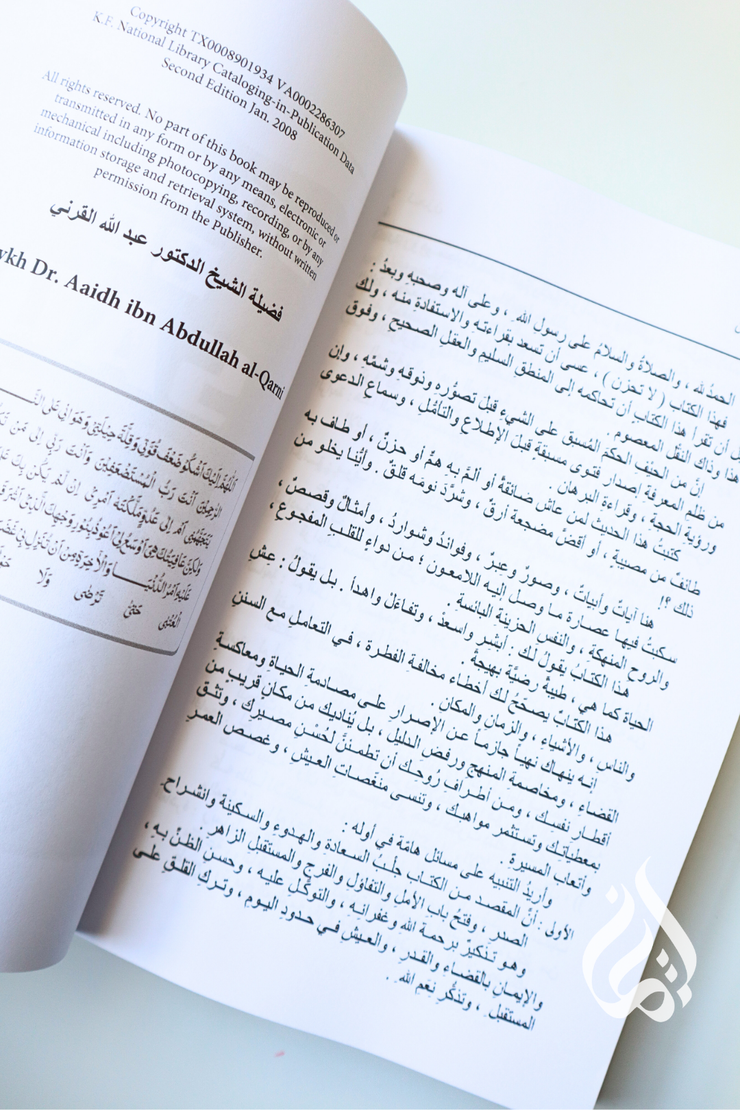 Copyright TX0008901934 VA0002286307
K.F. National Library Cataloging-in-Publication Data
Second Edition Jan. 2008
All rights reserved. No part of this book may be reproduced or
transmitted in any form or by any means, electronic or
mechanical including photocopying, recording, or by any
information storage and retrieval system, without written
permission from the Publisher.
فضيلة الشيخ الدكتور عبد الله القرني
ykh Dr. Aaidh ibn Abdullah al-Qarni
الحمدُ لله ، والصلاةُ والسلامُ على رسول اللهِ ، وعلى آله وصحبِهِ وبعدُ :
فهذا الكتاب ( لا تحزن ) ، عسى أن تسعد بقراءته والاستفادةِ منه ، ولك
أن تقرأ هذا الكتاب أن تحاكمه إلى المنطق السليم والعقلِ الصحيحِ ، وفوق
هذا وذاك النَّقْلِ المعصومِ
إنَّ من الحَيْفِ الحكمَ المُسبقَ على الشيءِ قبلَ تصوُّرِهِ وذوقِهِ وشمِّهِ ، وإن
من ظلمِ المعرفةِ إصدار فتوى مسبقةٍ قبلَ الإطلاعِ والتأمُّلِ ، وسماعِ الدعوى
ورؤيةِ الحجةِ ، وقراءةِ البرهان .
كتبتُ هذا الحديث لمن عاش ضائقةً أو ألمَّ بهِ همٌّ أو حزنٌ ، أو طاف به
طائفٌ من مصيبةٍ ، أو أقضَّ مضجعة أرقٌ ، وشرَّدَ نومَه قلقٌ . وأيُّنا يخلو من
ذلك ؟!
هنا آياتٌ وأبياتٌ ، وصورٌ وعبرٌ ، وفوائدُ وشواردُ ، وأمثالٌ وقصصٌ ،
سكبتُ فيها عصارة ما وصل إليه اللامعون ؛ من دواءٍ للقلبِ المفجوعِ ،
والروحِ المنهكةِ ، والنفسِ الحزينةِ البائسةِ .
هذا الكتابُ يقولُ لك : أبشِر واسعدْ ، وتفاءَلْ واهدأ . بل يقولُ : عِشِ
الحياة كما هي ، طيبةً رضيَّةً بهيجةً .
هذا الكتابُ يصحّحُ لك أخطاء مخالفةِ الفطرةِ ، في التعاملِ مع السننِ
والناسِ ، والأشياءِ ، والزمانِ والمكانِ .
إنه ينهاك نهياً جازماً عن الإصرارِ على مصادمةِ الحياةِ ومعاكسةِ
القضاءِ ، ومخاصمةِ المنهجِ ورفضِ الدليل ، بل يُناديك من مكانٍ قريبٍ من
أقطارِ نفسِك ، ومن أطرافِ رُوحِك أن تطمئنَّ لحُسْنِ مصيرِك ، وتثق
بمعطياتِك وتستثمر مواهبك ، وتنسى منغّصاتِ العيشِ ، وغصص العمرِ
وأتعاب المسيرةِ .
وأريدُ التنبيه على مسائل هامّة في أوله :
الأولى : أنَّ المقصد من الكتاب جلْبُ السعادةِ والهدوءِ والسكينة وانشراحِ
الصدرِ ، وفتحُ بابِ الأملِ والتفاؤلِ والفرج والمستقبلِ الزاهرِ .
وهو تذكيرٌ برحمة الله وغفرانِهِ ، والتوكُّلِ عليه ، وحسنِ الظنِّ بهِ ،
والإيمانِ بالقضاءِ والقدرِ ، والعيشِ في حدودِ اليومِ ، وتركِ القلقِ على
المستقبلِ ، وتذكُّرِ نِعَمِ اللهِ .